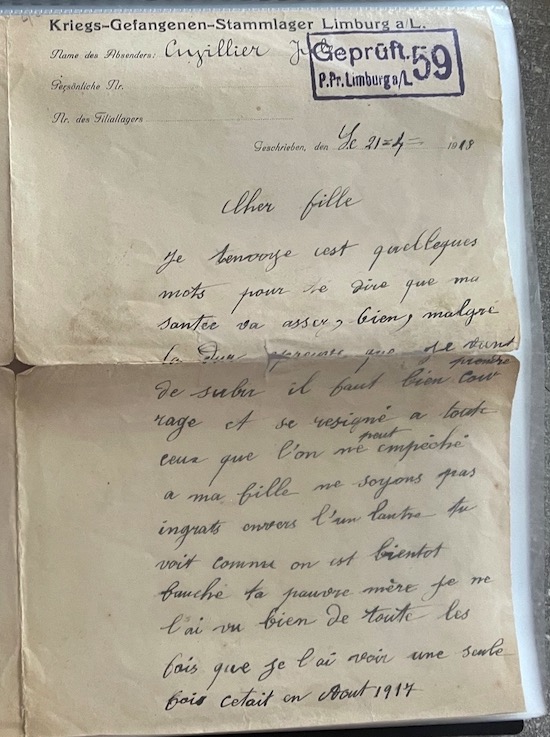 Kriegs-Gefangenen-Stammlager Limburg a/L.
Name des Absenders: Cuzillier
Geprüft. 59
P.Pr. Limburg a/L
Persönliche Nr.
Nr. des Filiallagers
Geschrieben, den Le 21=4= 1918
Cher fille
Je tenvoye cest quelleques
mots pour te dire que ma
santée va asser, bien, malgré
la Dur epreuve que je vient
de subir il faut bien prendre cou
rage et se resigné a toute
ceux que l'on ne peut empéché
a ma fille ne soyons pas
ingrats envers l'un lautre tu
voit comme on est bientot
fauché ta pauvre mère je ne
l'ai vu bien de toute les
fois que je l'ai voir une seule
fois cetait en Aout 1917